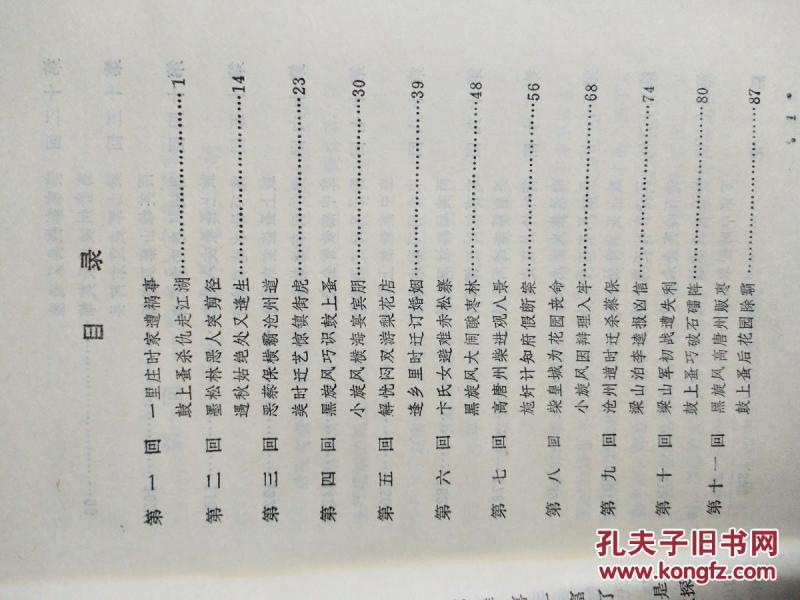 目录
第一回 一里庄时家遭祸事
鼓上蚤杀仇走江湖……1
第二回 墨松林恶人突剪径
遇秋姑绝处又逢生……14
第三回 恶蔡保横霸沧州道
美时迁艺惊镇街虎……23
第四回 黑旋风巧识鼓上蚤
小旋风横海宴宾朋……30
第五回 解忧闷双游梨花店
逢乡里时迁订婚姻……39
第六回 卞氏女避难赤松寨
黑旋风大闹酸枣林……48
第七回 高唐州柴进观八景
施奸计知府假断案……56
第八回 柴皇城为花园丧命
小旋风因辩理入牢……68
第九回 沧州道时迁杀蔡保
梁山泊李逵报凶信……74
第十回 梁山军初战遭失利
鼓上蚤巧破石礌阵……80
第十一回 黑旋风高唐州贩枣
鼓上蚤后花园除霸……87
1
孔夫子旧书网
www.kongfz.com